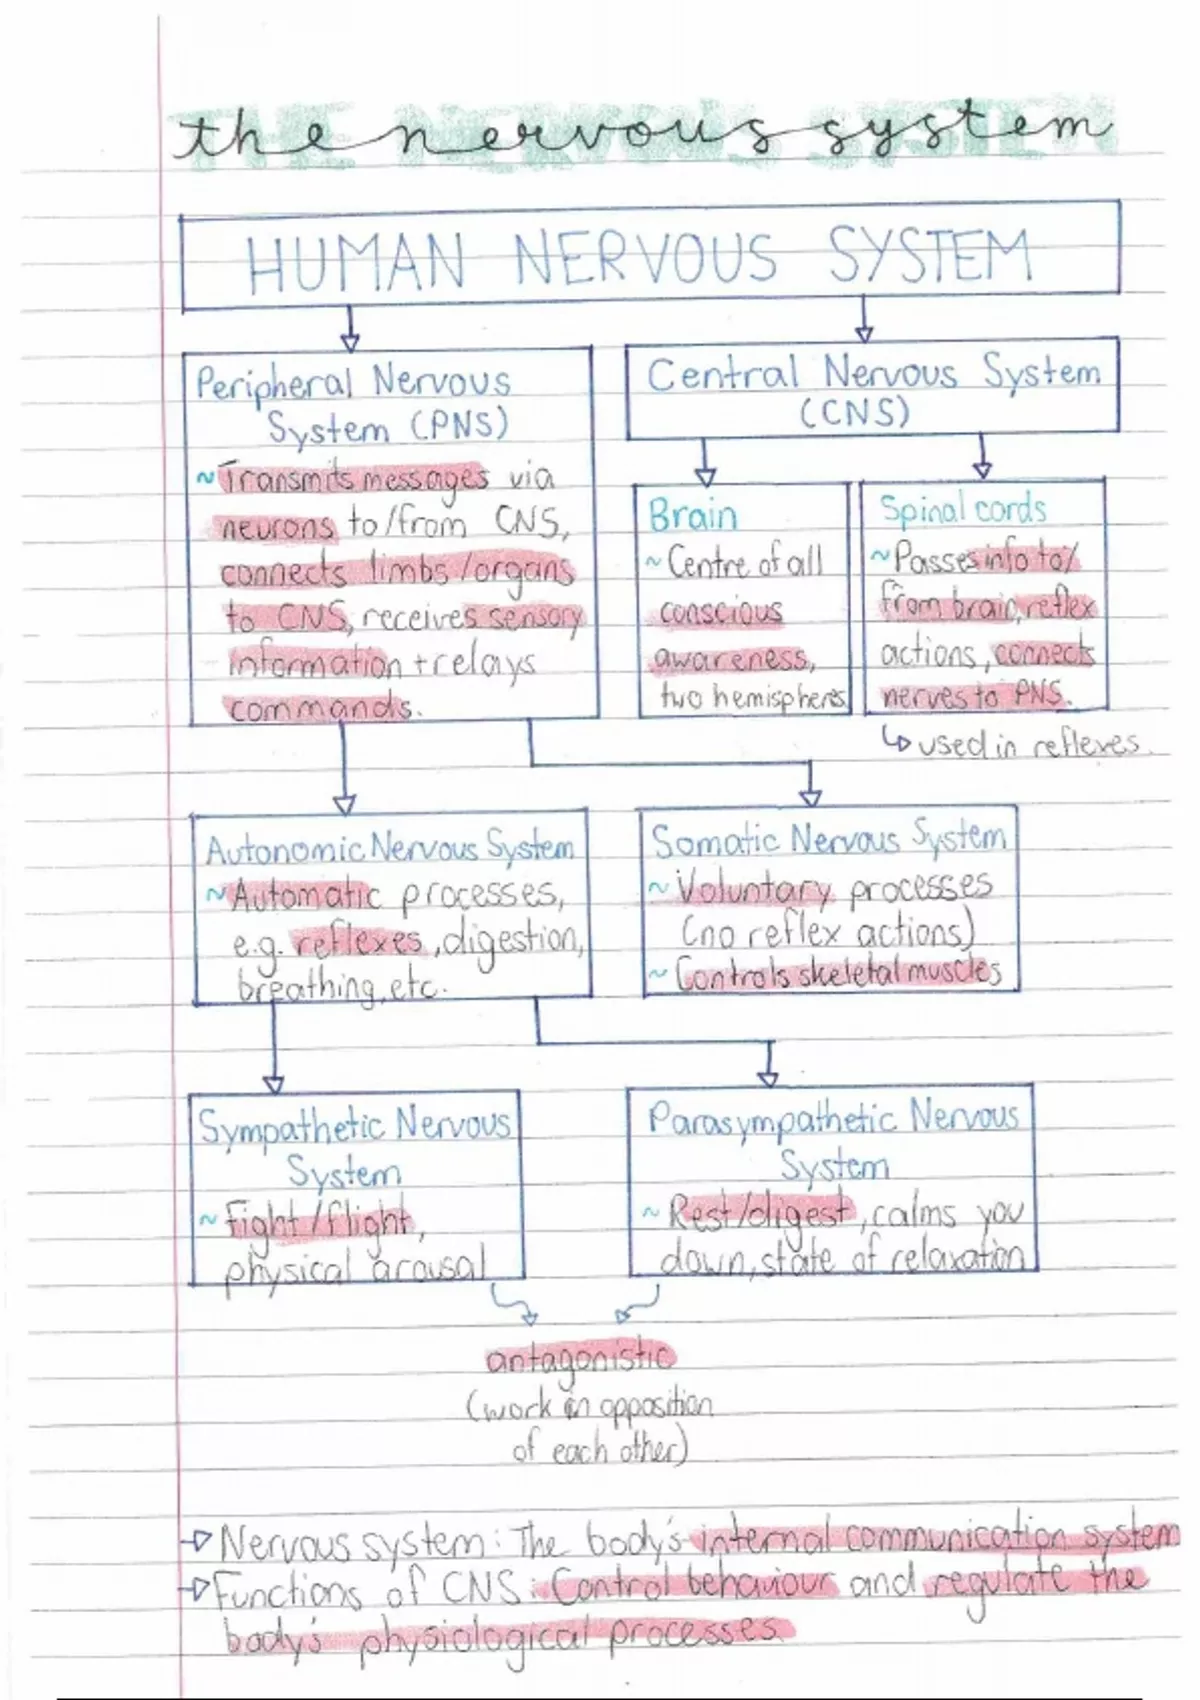 the nervous system
HUMAN NERVOUS SYSTEM
Peripheral Nervous
System (PNS)
~ Transmits messages via
neurons to/from CNS,
connects limbs/organs
to CNS, receives sensory
information + relays
commands.
Central Nervous System
(CNS)
Brain
~ Centre of all
conscious
awareness,
two hemispheres
Spinal cords
~ Passes info to/
from brain, reflex
actions, connects
nerves to PNS.
↳ used in reflexes.
Autonomic Nervous System
~ Automatic processes,
e.g. reflexes, digestion,
breathing, etc.
Somatic Nervous System
~ Voluntary processes
(no reflex actions)
~ Controls skeletal muscles
Sympathetic Nervous
System
~ Fight/flight,
physical arousal
Parasympathetic Nervous
System
~ Rest/digest, calms you
down, state of relaxation
antagonistic
(work in opposition
of each other)
→ Nervous system: The body's internal communication system
→ Functions of CNS: Control behaviour and regulate the
body's physiological processes